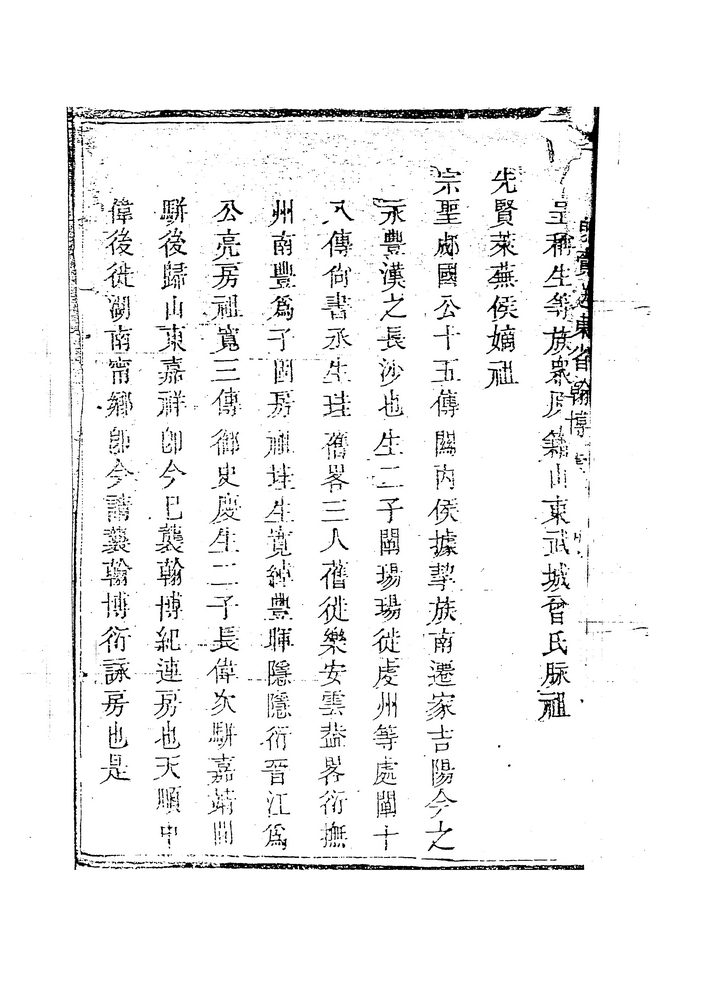 東省翰博
呈稱生等族衆原籍山東武城曾氏脉祖
先賢萊蕪侯嫡祖
宗聖郕國公十五傳關內侯據挈族南遷家吉陽今之
永豐漢之長沙也生二子闡瑒瑒徙虔州等處闡十
八傳尙書丞生珪舊畧三人舊徙樂安雲葢畧衍撫
州南豐爲子固房祖珪生寬綽豐暉隱隱衍晉江爲
公亮房祖寬三傳御史慶生二子長偉次駢嘉靖間
駢後歸山東嘉祥卽今已襲翰博紀連房也天順中
偉後徙湖南甯鄉卽今請襲翰博衍詠房也是